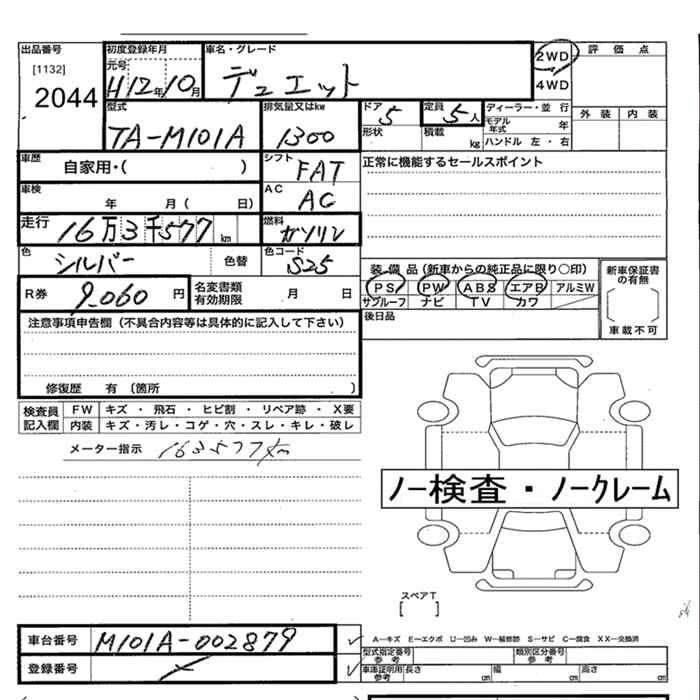 出品番号 初度登録年月 車名・グレード 2WD 評価点
[1132] 元号 4WD
2044 H12年10月 デュエット
型式 排気量又はkw ドア 定員 ディーラー・並行 外装 内装
TA-M101A 1300 5 5人 モデル年式 年
形状 積載 kg ハンドル 左・右
車歴 自家用・( ) シフト FAT 正常に機能するセールスポイント
車検 年 月( 日) AC AC
走行 16万3千577km 燃料 ガソリン
色 シルバー 色替 色コード S25
装備品(新車からの純正品に限り○印) 新車保証書の有無
R券 9,060円 名変書類有効期限 月 日 PS PW ABS エアB アルミW
サンルーフ ナビ TV カワ 車載不可
注意事項申告欄(不具合内容等は具体的に記入して下さい) 後日品
修復歴 有(箇所 )
検査員記入欄 FW キズ・飛石・ヒビ割・リペア跡・X要
内装 キズ・汚レ・コゲ・穴・スレ・キレ・破レ
メーター指示 163577km
ノー検査・ノークレーム
スペアT
[ ]
車台番号 M101A-002879
A-キズ E-エクボ U-凹み W-補修跡 S-サビ C-腐食 XX-交換済
型式指定番号 参考 類別区分番号 参考
登録番号
車庫証明用 参考 長さ cm 幅 cm 高さ cm